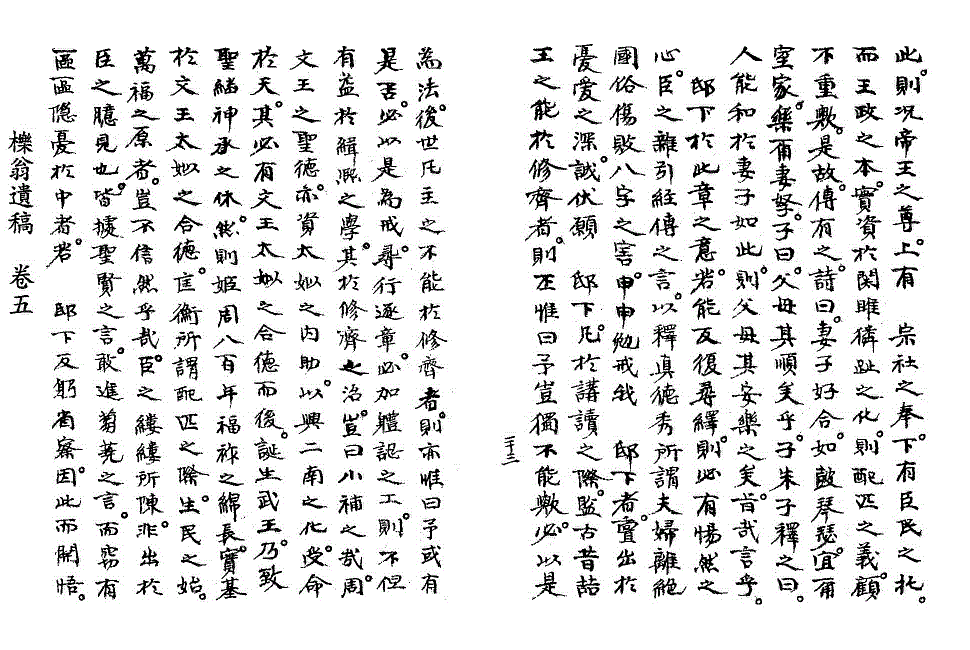 此則况帝王之尊上有 宗社之奉下有臣民之托
而王政之本實資於関雎獜趾之化則配匹之義顧
不重歟是故傳有之詩曰妻子好合如皷琴瑟宜爾
室家樂爾妻孥子曰父母其順矣乎子朱子釋之曰
人能和於妻子如此則父母其安樂之矣旨哉言乎
邸下於此章之意若能反復尋繹則必有惕然之
心臣之離引經傳之言以釋眞德秀所謂夫婦離絶
國俗傷敗八字之害申申勉戒我 邸下者亶出於
憂愛之深誠伏願 邸下凡於講讀之際監古昔喆
王之能於修齊者則丕惟曰予豈獨不能歟必以是
三十三
為法後世凡主之不能於修齊者則亦惟曰予或有
是否必以是為戒尋行逐章必加軆認之工則不但
有益於緝熙之學其於修齊之治豈曰小補之哉周
文王之聖德亦資太姒之内助以興二南之化受命
於天其必有文王太姒之合德而後誕生武王乃致
聖緖神承之休然則姬周八百年福祚之綿長實基
於文王太姒之合德匡衡所謂配匹之際生民之始
萬福之原者豈不信然乎哉臣之縷縷所陳非出於
臣之臆見也皆據聖賢之言敢進蒭蕘之言而窃有
區區隱憂於中者若 邸下反躬省察因此而開悟
櫟翁遺稿 卷五